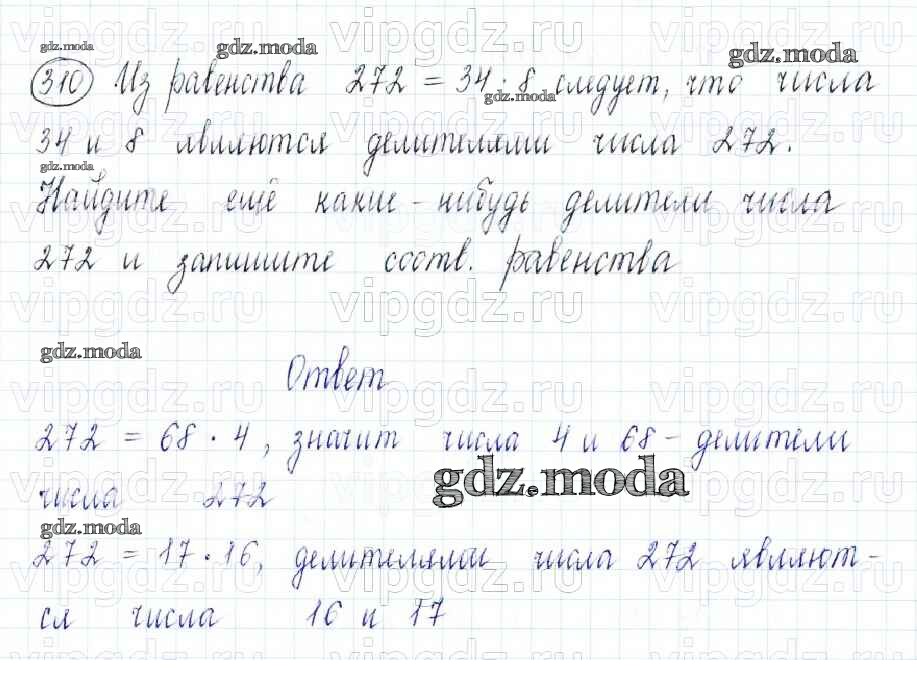 gdz.moda
gdz.moda
gdz.moda
310 Из равенства 272 = 34 · 8 следует, что числа
gdz.moda
34 и 8 являются делителями числа 272.
gdz.moda
Найдите ещё какие-нибудь делители числа
272 и запишите соотв. равенства
vipgdz.ru vipgdz.ru vipgdz.ru
gdz.moda
Ответ
272 = 68 · 4, значит числа 4 и 68 - делители
gdz.moda
числа 272
gdz.moda
272 = 17 · 16, делителями числа 272 являют-
ся числа 16 и 17